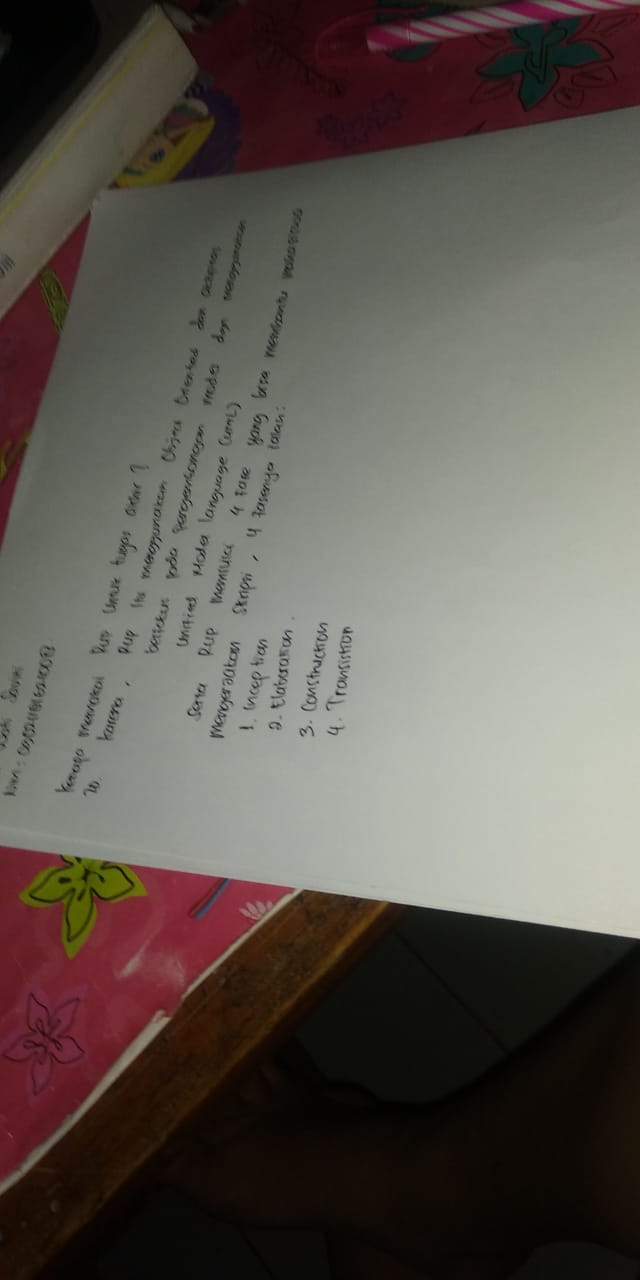 Kenapa memakai Rup untuk tugas akhir ?
Jb. Karena, Rup itu menggunakan Object Oriented dan
berfokus pada pengembangan model dgn menggunakan
Unified Model Language (UML)
Serta Rup Memiliki 4 fase yang bisa membantu mahasiswa
Mengerjakan skripsi, 4 fasenya ialah:
1. Inception
2. Elaboration.
3. Construction
4. Transistion